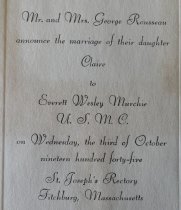 Mr. and Mrs. George Rousseau
announce the marriage of their daughter
Claire
to
Everett Wesley Murchie
U. S. M. C.
on Wednesday, the third of October
nineteen hundred forty-five
St. Joseph's Rectory
Fitchburg, Massachusetts